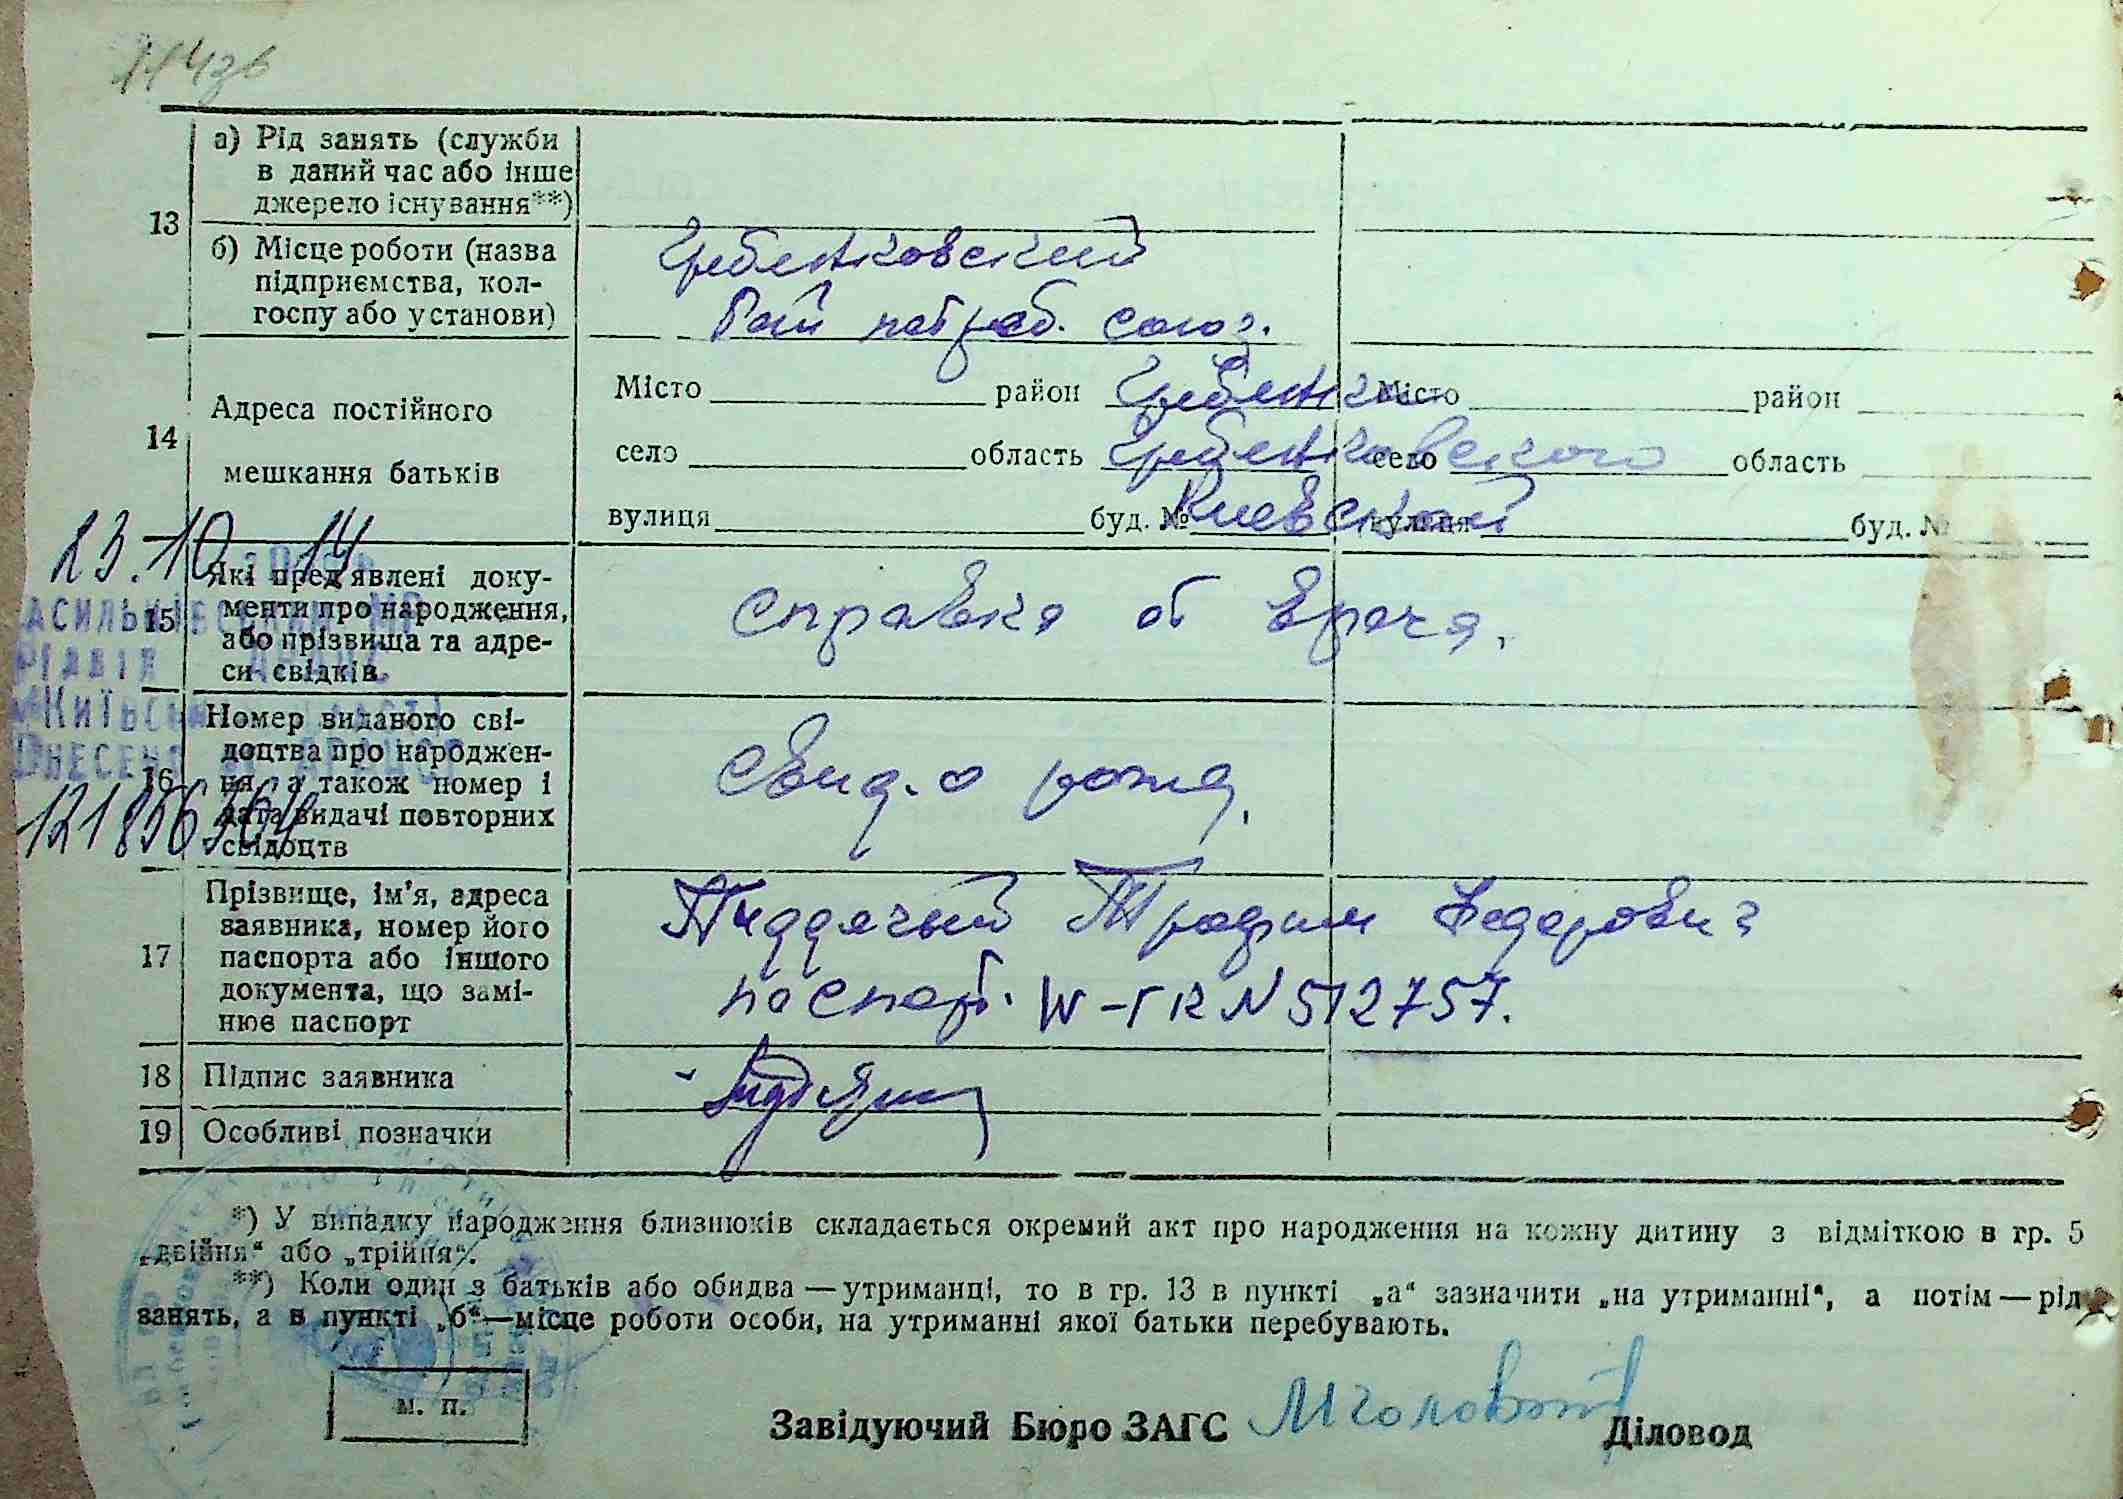 114зв
13
а) Рід занять (служби
в даний час або інше
джерело існування**)
б) Місце роботи (назва
підприємства, кол-
госпу або установи)
Гребенковский
Рай потреб. союз.
14
Адреса постійного
мешкання батьків
Місто район Гребенки Місто район
село область Гребенковского село область
вулиця буд. № Киевской вулиця буд. №
23.10 14
15
Які пред'явлені доку-
менти про народження,
або прізвища та адре-
си свідків.
справка от врача.
16
Номер виданого сві-
доцтва про народжен-
ня, а також номер і
дата видачі повторних
свідоцтв
свид. о рожд.
17
Прізвище, ім'я, адреса
заявника, номер його
паспорта або іншого
документа, що замі-
нює паспорт
Пиддячый Трофим Федорович
паспорт. N 512757.
18 Підпис заявника
19 Особливі позначки
*) У випадку народження близнюків складається окремий акт про народження на кожну дитину з відміткою в гр. 5
„двійня“ або „трійня“.
**) Коли один з батьків або обидва — утриманці, то в гр. 13 в пункті „а“ зазначити „на утриманні“, а потім — рід
занять, а в пункті „б“—місце роботи особи, на утриманні якої батьки перебувають.
м. п.
Завідуючий Бюро ЗАГС Діловод